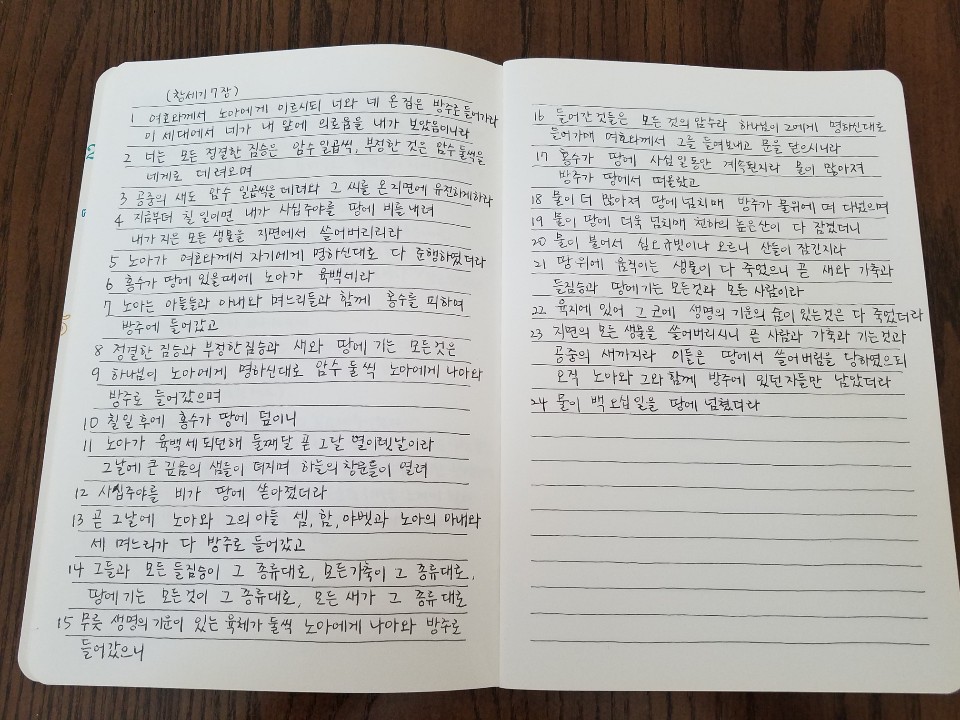 (창세기 7장)
1 여호와께서 노아에게 이르시되 너와 네 온 집은 방주로 들어가라
이 세대에서 네가 내 앞에 의로움을 내가 보았음이니라
2 너는 모든 정결한 짐승은 암수 일곱씩, 부정한 것은 암수 둘씩을
네게로 데려오며
3 공중의 새도 암수 일곱씩을 데려와 그 씨를 온 지면에 유전하게하라
4 지금부터 칠 일이면 내가 사십주야를 땅에 비를 내려
내가 지은 모든 생물을 지면에서 쓸어버리리라
5 노아가 여호와께서 자기에게 명하신대로 다 준행하였더라
6 홍수가 땅에 있을때에 노아가 육백세라
7 노아는 아들들과 아내와 며느리들과 함께 홍수를 피하여
방주에 들어갔고
8 정결한 짐승과 부정한짐승과 새와 땅에 기는 모든것은
9 하나님이 노아에게 명하신대로 암수 둘씩 노아에게 나아와
방주로 들어갔으며
10 칠일 후에 홍수가 땅에 덮이니
11 노아가 육백세 되던해 둘째달 곧 그달 열이렛날이라
그날에 큰 깊음의 샘들이 터지며 하늘의 창문들이 열려
12 사십주야를 비가 땅에 쏟아졌더라
13 곧 그날에 노아와 그의 아들 셈, 함, 야벳과 노아의 아내와
세 며느리가 다 방주로 들어갔고
14 그들과 모든 들짐승이 그 종류대로, 모든가축이 그 종류대로,
땅에 기는 모든것이 그 종류대로, 모든 새가 그 종류대로
15 무릇 생명의 기운이 있는 육체가 둘씩 노아에게 나아와 방주로
들어갔으니
16 들어간 것들은 모든 것의 암수라 하나님이 그에게 명하신대로
들어가매 여호와께서 그를 들여보내고 문을 닫으시니라
17 홍수가 땅에 사십일동안 계속된지라 물이 많아져
방주가 땅에서 떠올랐고
18 물이 더 많아져 땅에 넘치매 방주가 물위에 떠 다녔으며
19 물이 땅에 더욱 넘치매 천하의 높은산이 다 잠겼더니
20 물이 불어서 십오규빗이나 오르니 산들이 잠긴지라
21 땅 위에 움직이는 생물이 다 죽었으니 곧 새와 가축과
들짐승과 땅에 기는 모든것과 모든 사람이라
22 육지에 있어 그 코에 생명의 기운의 숨이 있는것은 다 죽었더라
23 지면의 모든 생물을 쓸어버리시니 곧 사람과 가축과 기는것과
공중의 새까지라 이들은 땅에서 쓸어버림을 당하였으되
오직 노아와 그와 함께 방주에 있던자들만 남았더라
24 물이 백 오십 일을 땅에 넘쳤더라